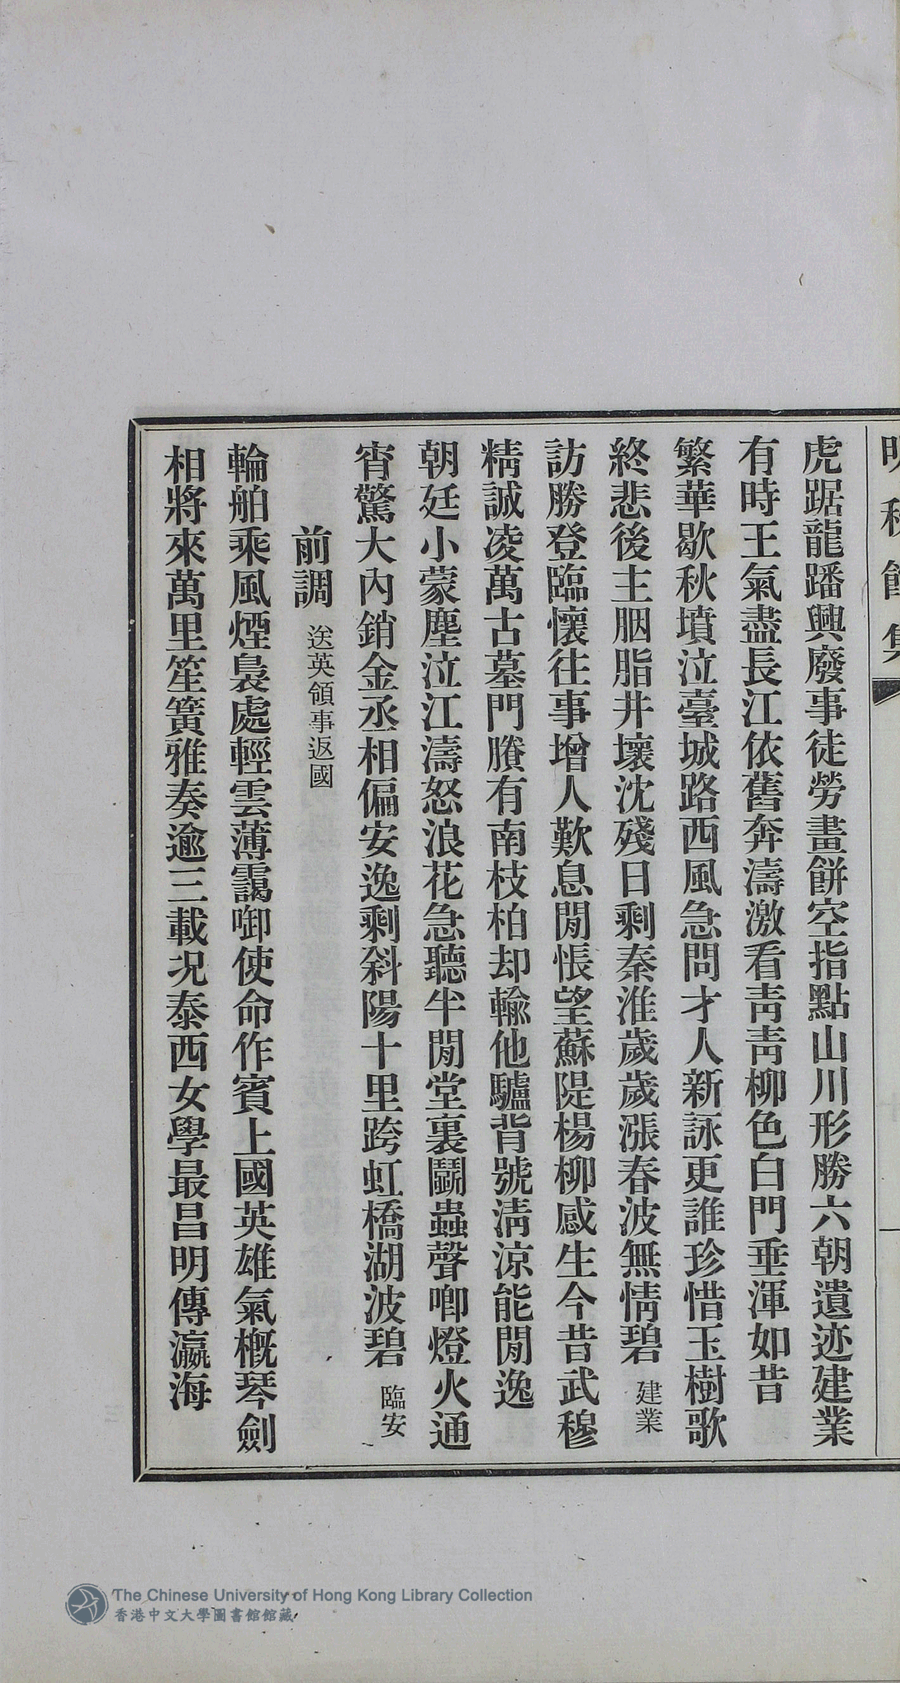 虎踞龍蹯興廢事徒勞畫餠空指點山川形勝六朝遺迹建業
有時王氣盡長江依舊奔濤激看靑靑柳色白門垂渾如昔
繁華歇秋墳泣臺城路西風急問才人新詠更誰珍惜玉樹歌
終悲後主胭脂井壞沈殘日剩秦淮歲歲漲春波無情碧 建業
訪勝登臨懷往事增人歎息閒悵望蘇隄楊柳感生今昔武穆
精誠凌萬古墓門賸有南枝柏却輸他驢背號淸涼能閒逸
朝廷小蒙塵泣江濤怒浪花急聽半閒堂裏鬭蟲聲喞燈火通
宵驚大內銷金丞相偏安逸剩斜陽十里跨虹橋湖波碧 臨安
前調 送英領事返國
輪舶乘風煙裊處輕雲薄靄啣使命作賓上國英雄氣槪琴劍
相將來萬里笙簧雅奏逾三載况泰西女學最昌明傳瀛海
The Chinese University of Hong Kong Library Collection
香港中文大學圖書館館藏